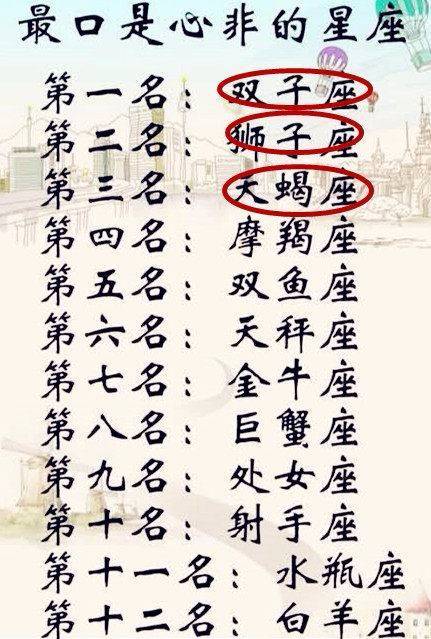 最口是心非的星座
第一名：双子座
第二名：狮子座
第三名：天蝎座
第四名：摩羯座
第五名：双鱼座
第六名：天秤座
第七名：金牛座
第八名：巨蟹座
第九名：处女座
第十名：射手座
第十一名：水瓶座
第十二名：白羊座